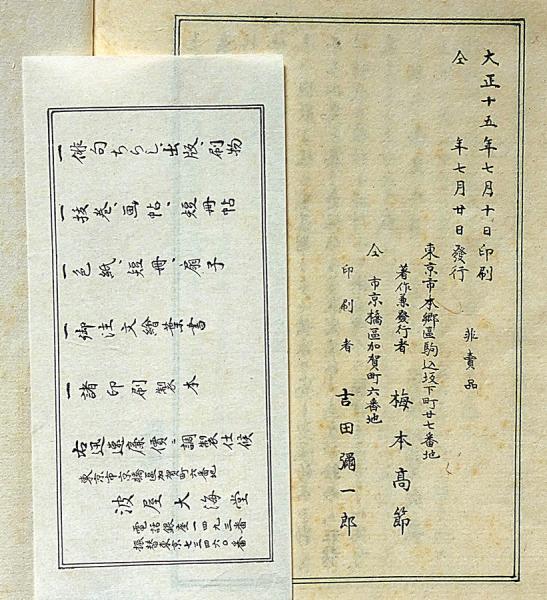 大正十五年七月十日印刷
仝　　年七月廿日發行
非賣品
東京市本郷區駒込坂下町廿七番地
著作兼發行者　梅本高節
仝市京橋區加賀町六番地
印刷者　吉田彌一郎
一俳句ちらし、出版、刷物
一拔卷、画帖、短冊帖
一色紙、短冊、扇子
一御注文繪葉書
一諸印刷製本
右迅速廉價ニ調製仕候
東京市京橋區加賀町六番地
波屋大海堂
電話銀座一四九三番
振替東京七三四六〇番